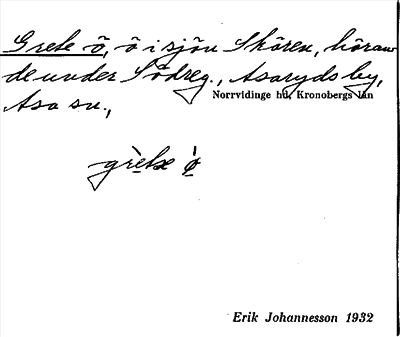 Grete ö, ö i sjön Skären, höran-
de under Södreg., Asaryds by,
Norrvidinge hd, Kronobergs län
Asa sn.,
Erik Johannesson 1932